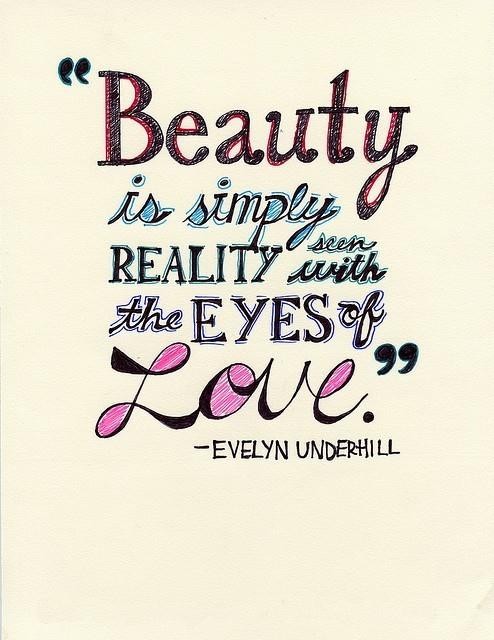 “Beauty
is simply
REALITY seen with
the EYES of
Love.”
—EVELYN UNDERHILL